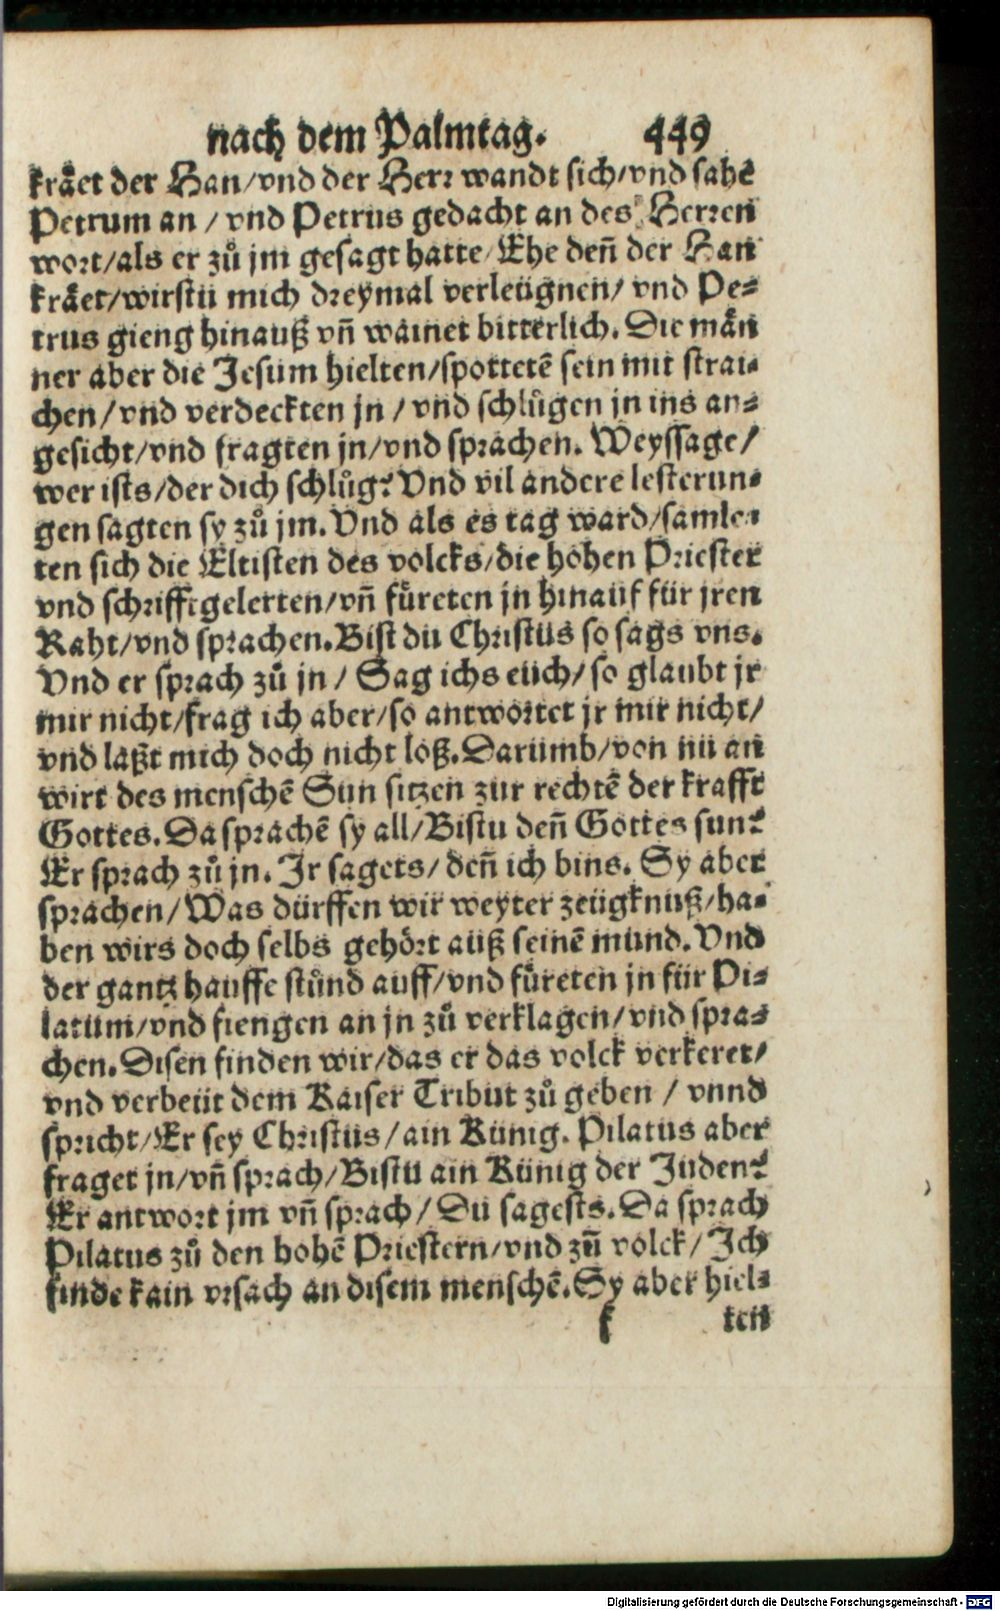 nach dem Palmtag. 449
kräet der Han/vnd der Herr wandt sich/vnd sahē
Petrum an / vnd Petrus gedacht an des Herren
wort/als er zů jm gesagt hatte/Ehe deñ der Han
kräet/wirstu mich dreymal verleügnen/ vnd Pe⸗
trus gieng hinauß vñ wainet bitterlich. Die män
ner aber die Jesum hielten/spottetē sein mit strai⸗
chen/vnd verdeckten jn / vnd schlůgen jn ins an⸗
gesicht/vnd fragten jn/vnd sprachen. Weyssage/
wer ists/der dich schlůg? Vnd vil andere lesterun⸗
gen sagten sy zů jm. Vnd als es tag ward/samle⸗
ten sich die Eltisten des volcks/die hohen Priester
vnd schrifftgelerten/vñ fůreten jn hinauf für jren
Raht/vnd sprachen. Bist du Christus so sags vns.
Vnd er sprach zů jn / Sag ichs euch/ so glaubt jr
mir nicht/frag ich aber/so antwortet jr mir nicht/
vnd laßt mich doch nicht loß. Darumb/von nu an
wirt des menschē Sun sitzen zur rechtē der krafft
Gottes. Da sprachē sy all/Bistu deñ Gottes sun?
Er sprach zů jn. Jr sagets/ deñ ich bins. Sy aber
sprachen/Was dürffen wir weyter zeügknuß/ha⸗
ben wirs doch selbs gehört auß seinē mund. Vnd
der gantz hauffe stůnd auff/vnd fůreten jn für Pi⸗
latum/vnd fiengen an jn zů verklagen/vnd spra⸗
chen. Disen finden wir/das er das volck verkeret/
vnd verbeüt dem Kaiser Tribut zů geben / vnnd
spricht/Er sey Christus/ain Künig. Pilatus aber
fraget jn/vñ sprach/Bistu ain Künig der Juden?
Er antwort jm vñ sprach/ Du sagests. Da sprach
Pilatus zů den hohē Priestern/vnd zũ volck/ Jch
finde kain vrsach an disem menschē. Sy aber hiel⸗
k ten
Digitalisierung gefördert durch die Deutsche Forschungsgemeinschaft - DFG